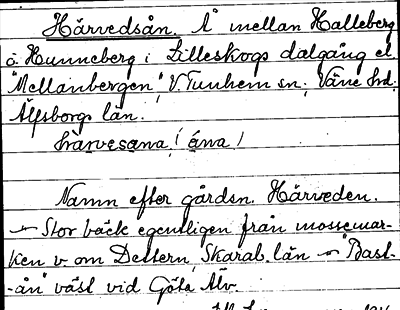 Härvedsån. Å mellan Halleberg
o. Hunneberg i Lilleskogs dalgång el.
"Mellanbergen", V. Tunhem sn; Väne hd.
Älfsborgs län.
härvesana / åna /
Namn efter gårdsn. Härveden.
Stor bäck egentligen från mossemar-
ken v. om Dettern, Skarab. län "Bast-
-ån" väst vid Göta Älv.